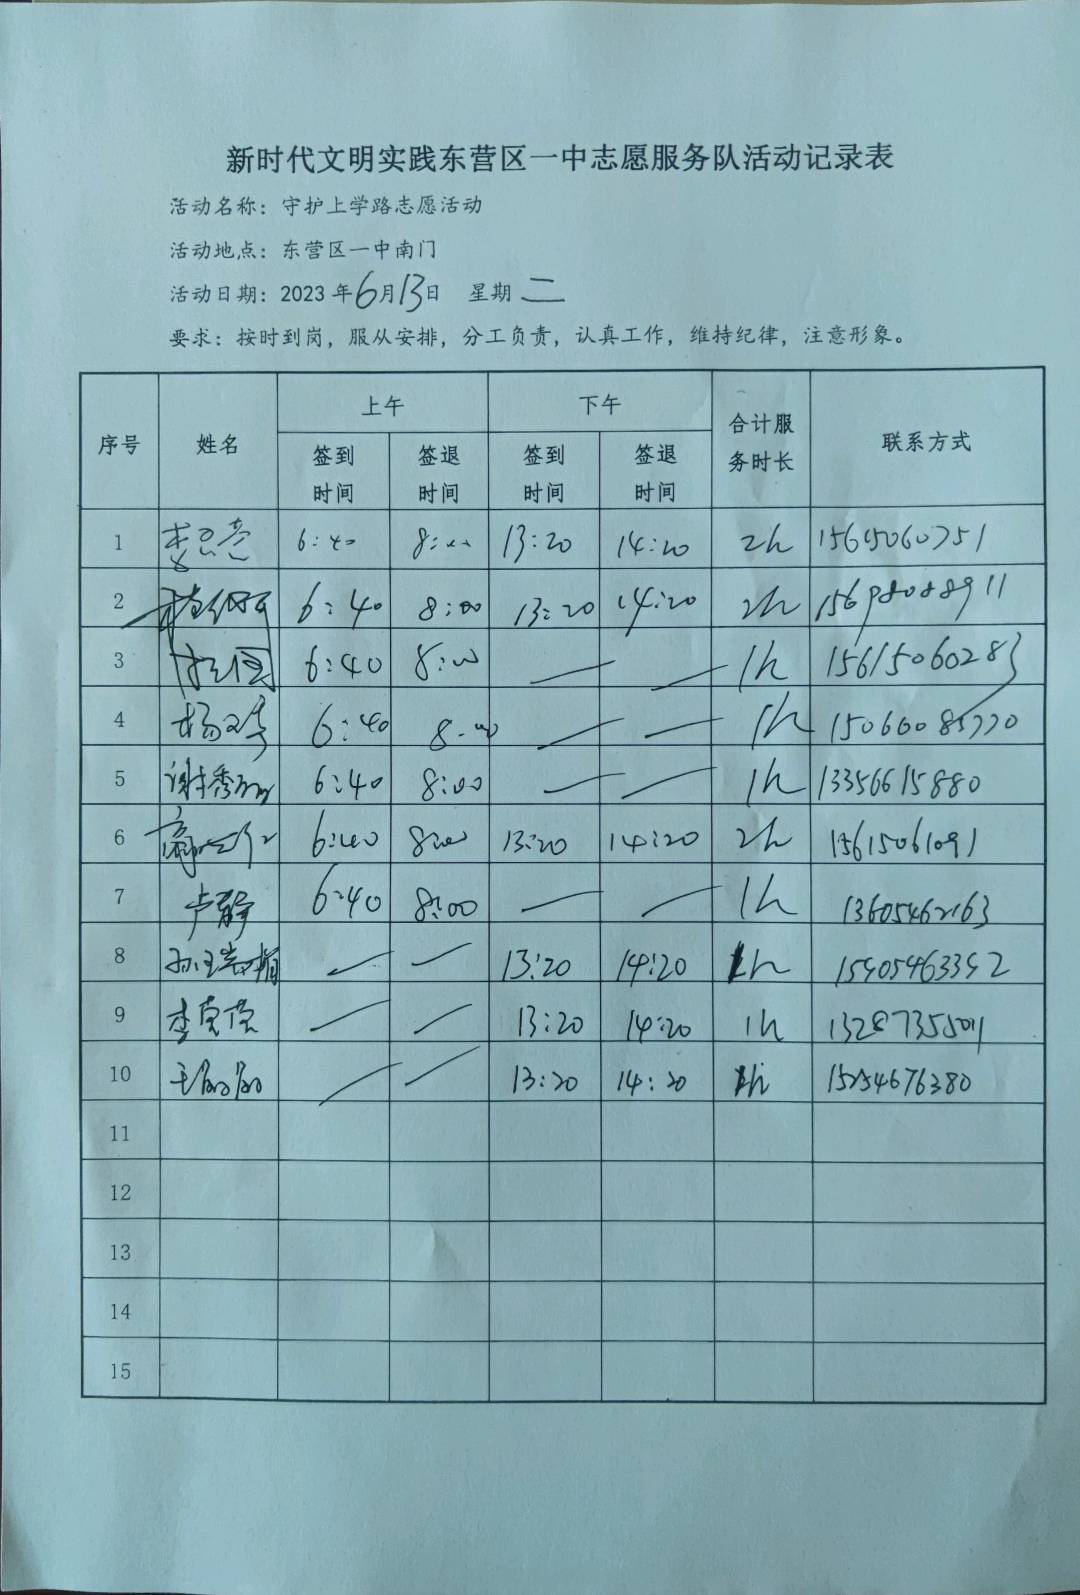 新时代文明实践东营区一中志愿服务队活动记录表
活动名称：守护上学路志愿活动
活动地点：东营区一中南门
活动日期：2023 年 6月13日 星期 二
要求：按时到岗，服从安排，分工负责，认真工作，维持纪律，注意形象。
序号 姓名 上午 下午 合计服务时长 联系方式
签到时间 签退时间 签到时间 签退时间
1 6:40 8:00 13:20 14:20 2h 15645060751
2 6:40 8:00 13:20 14:20 2h 15698088911
3 6:40 8:00 — — 1h 15615060283
4 6:40 8:00 — — 1h 15066085770
5 6:40 8:00 — — 1h 13356615880
6 6:40 8:00 13:20 14:20 2h 15615061091
7 卢静 6:40 8:00 — — 1h 13605462163
8 — — 13:20 14:20 1h
9 李莹莹 — — 13:20 14:20 1h
10 — — 13:20 14:20 1h 15254676380
11
12
13
14
15